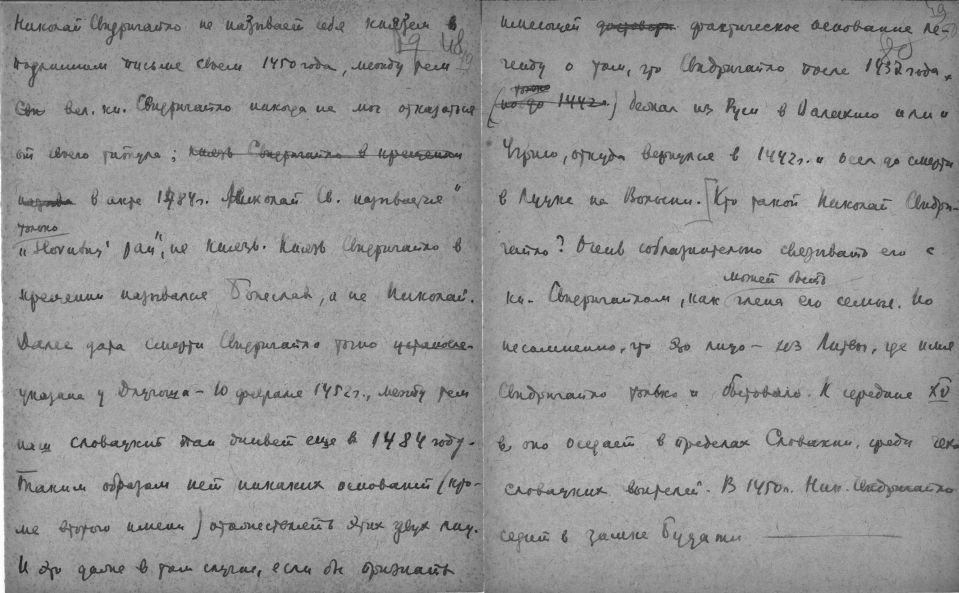 Николай Свидригайло не называет себя князем в
подлинном письме своем 1450 года, между тем
вел. кн. Свидригайло никогда не мог отказаться
от своего титула; князь Свидригайло в крещении
в акте 1484 г. Николай Св. называется
только
пан", не князь. Князь Свидригайло в
крещении назывался Болеслав, а не Николай.
Далее дата смерти Свидригайло точно
указана у Длугоша – 10 февраля 1452 г., между тем
наш словацкий пан живет еще в 1484 году.
Таким образом нет никаких оснований (кро-
ме второго имени) отождествлять этих двух лиц.
И это даже в том случае, если бы признать
49
имеющей фактическое основание ле-
генду о том, что Свидригайло после 1432 года
только
(но до 1442 г.) бежал из Руси в Валахию или
Угрию, откуда вернулся в 1442 г. и осел до смерти
в Луцке на Волыни. [Кто такой Николай Свидри-
гайло? Очень соблазнительно связывать его с
может быть
кн. Свидригайлом, как члена его семьи. Но
несомненно, что это лицо – из Литвы, где имя
Свидригайло только и бытовало. К середине XV
в. оно оседает в пределах Словакии, среди чехо-
словацких воителей. В 1450 г. Ник. Свидригайло
сидит в замке Будатин